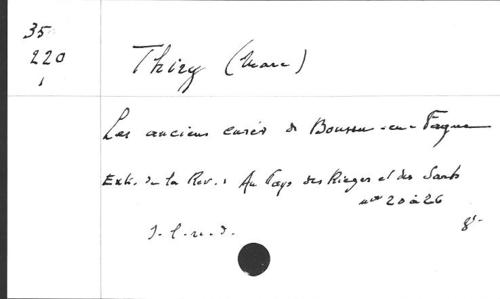 35
220
1
Thiry (Marc)
Les anciens curés de Boussu-en-Fagne
Extr. de la Rev.: Au Pays des Rièzes et des Sarts
nos 20 à 26
8°
S.l.n.d.